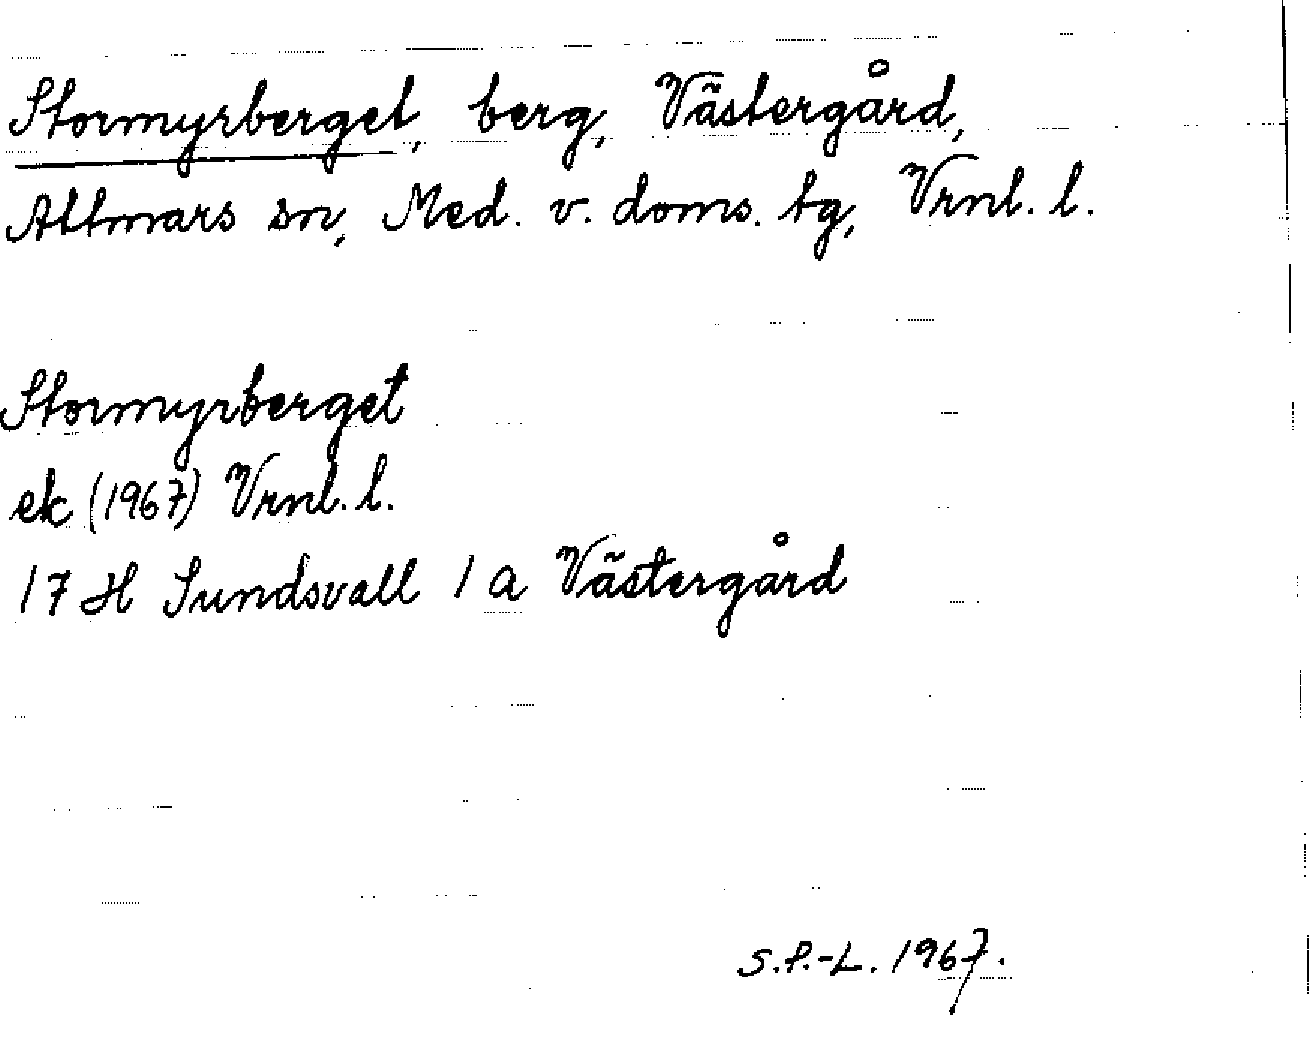 Stormyrberget, berg, Västergård,
Attmars sn, Med. v. doms. tg, Vrnl. l.
Stormyrberget
ek (1967) Vrnl. l.
17 H Sundsvall 1 a Västergård
S.P.-L. 1967.